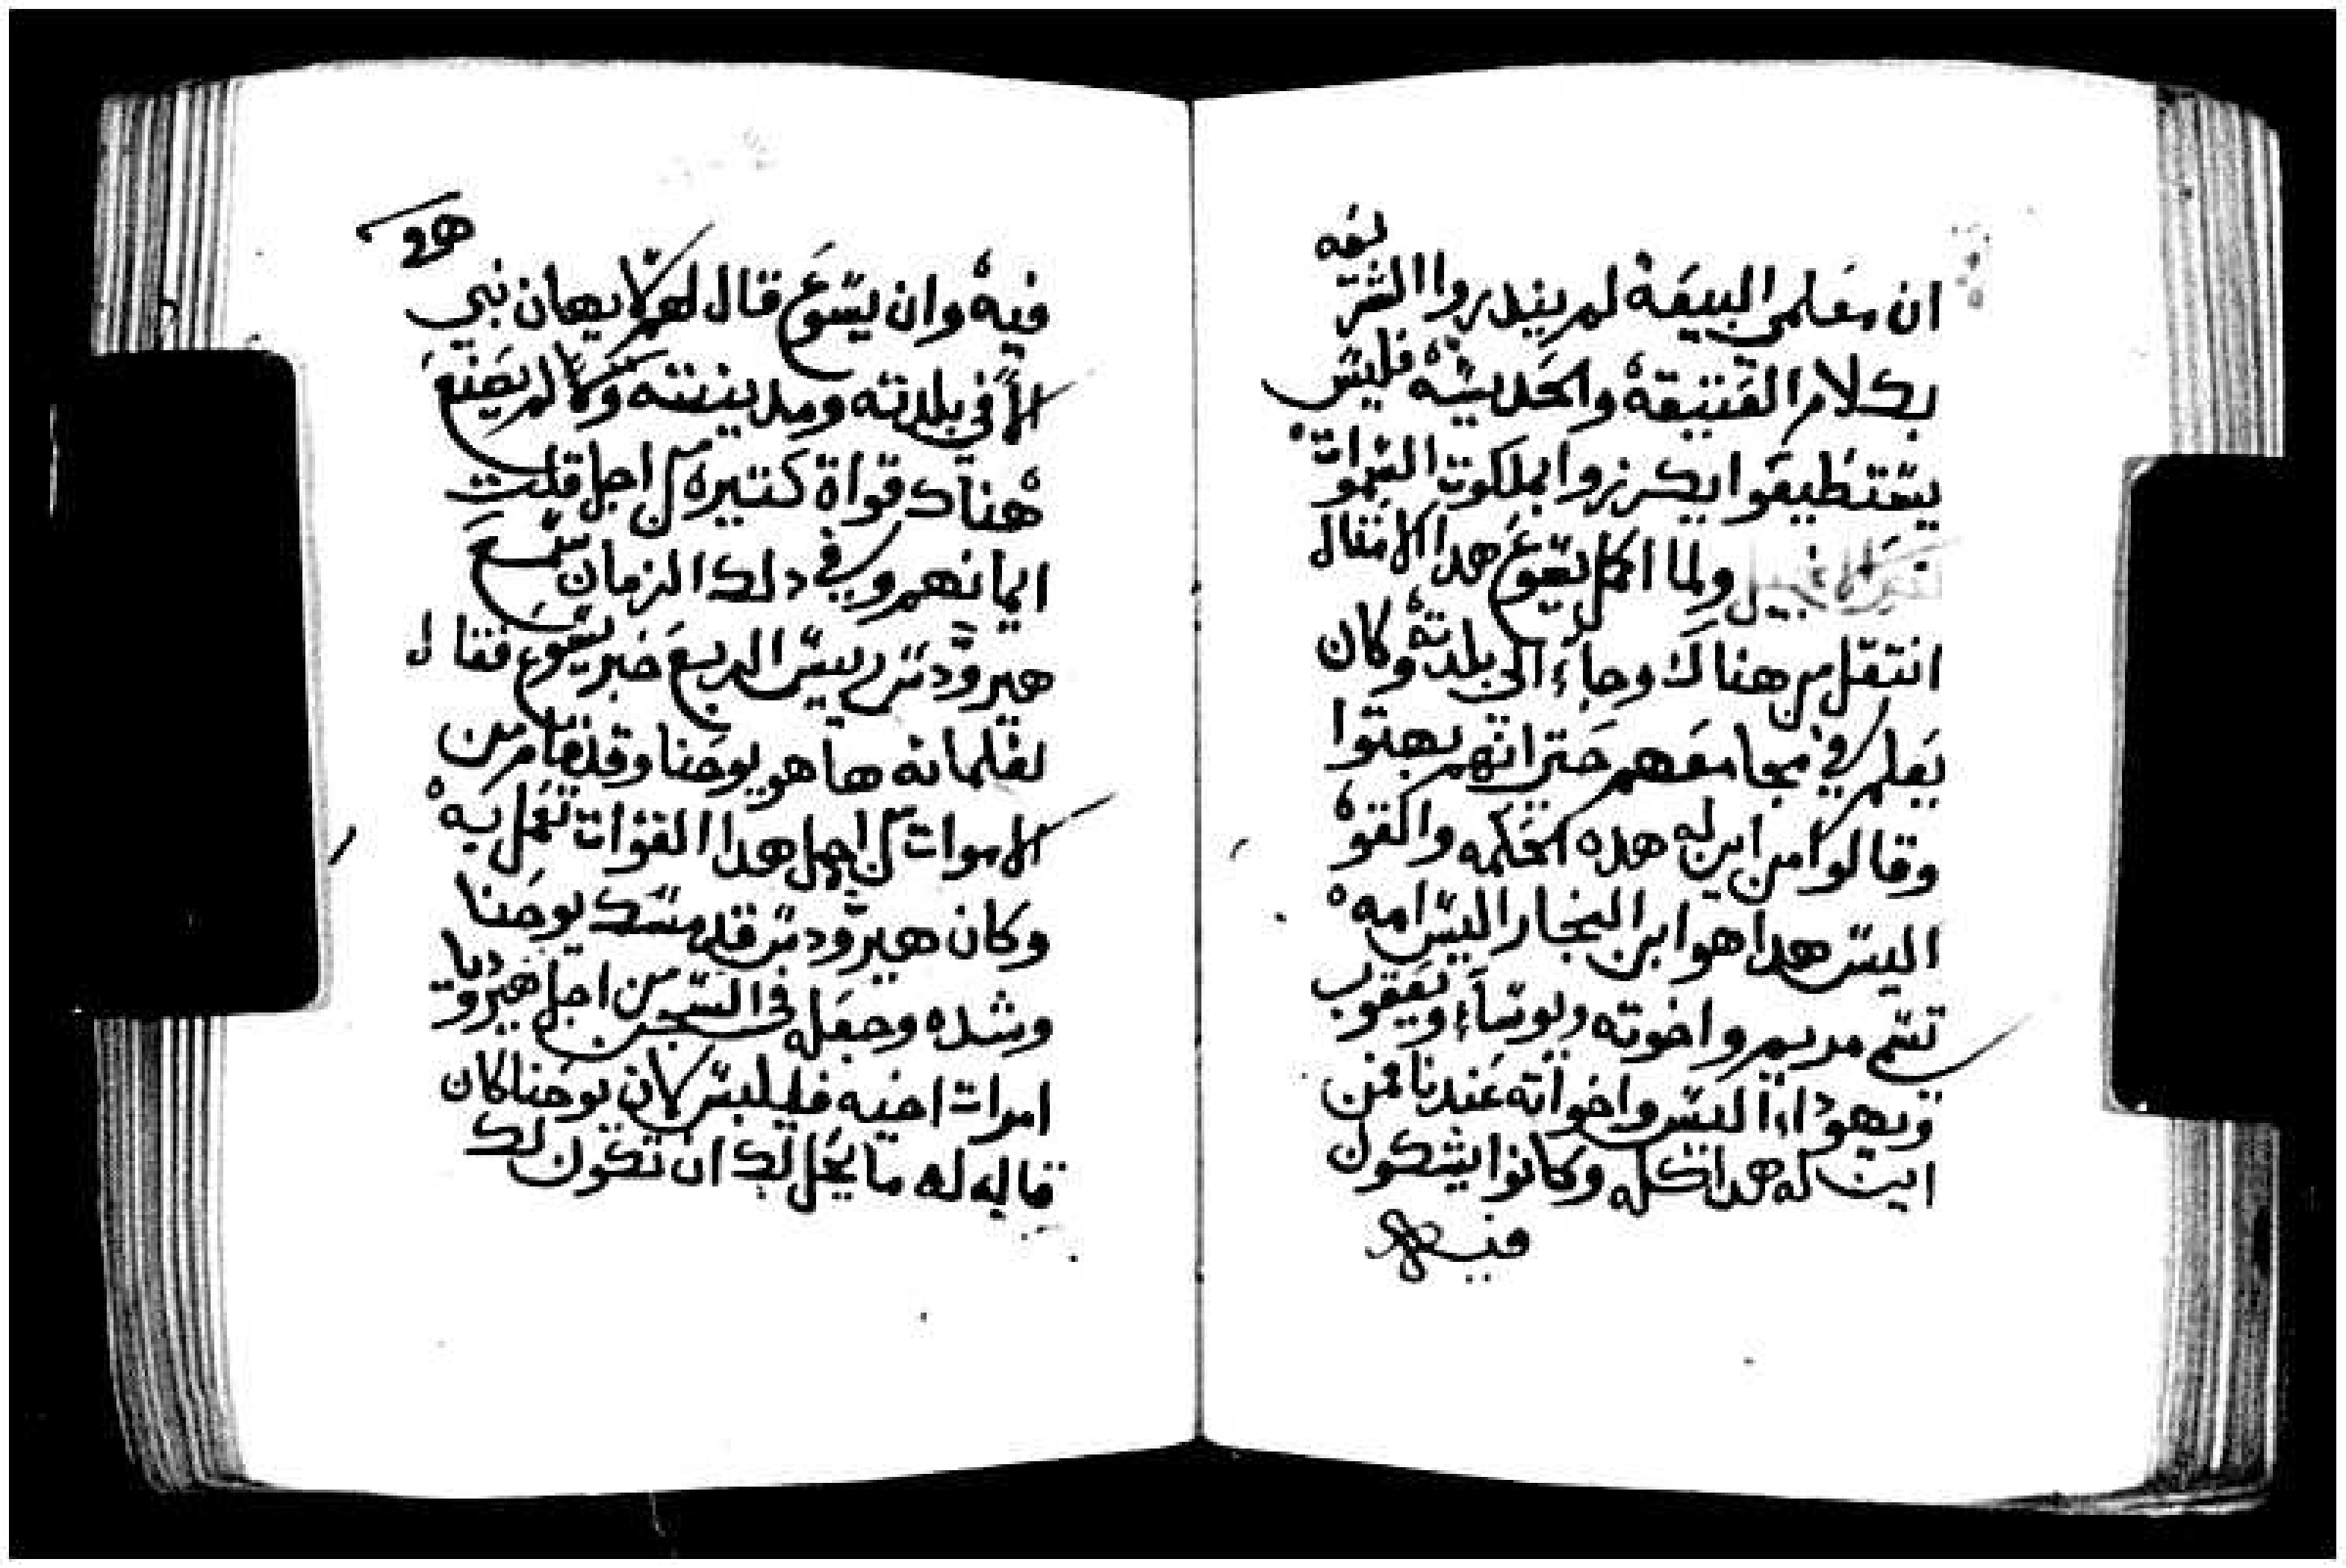 ان معلمى البيعه لم ينذروا الشر
يعه
بكلام العتيقه والحديثه فليس
يستطيعوا يكرزوا بملكوت السموات
ولما اكمل يسوع هدا الامثال
انتقل من هناك وجاء الى بلدته وكان
يعلم في مجامعهم حتى انهم بهتوا
وقالوا من اين له هده الحكمه والقوه
اليس هدا هوا ابن النجار اليس امه
تسم مريم واخوته ويوساء ويعقوب
ويهوداء اليس واخواته عندنا فمن
اين له هدا كله وكانوا يشكون
فيه
فيه وان يسوع قال لهم لا يهان نبي
الا في بلدته ومدينته وكما لم يصنع
هناك قواة كتيره من اجل قلت
ايمانهم وفي دلك الزمان سمع
هيرودس رييس الربع خبر يسوع فقال
لغلمانه هاهو يوحنا وقد قام من
الاموات من اجل هدا القوات تعمل به
وكان هيرودس قد مسك يوحنا
وشده وجعله في السجن من اجل هيروديا
امرات اخيه فيلبس لان يوحنا كان
قايله له ما يحل لك ان تكون لك